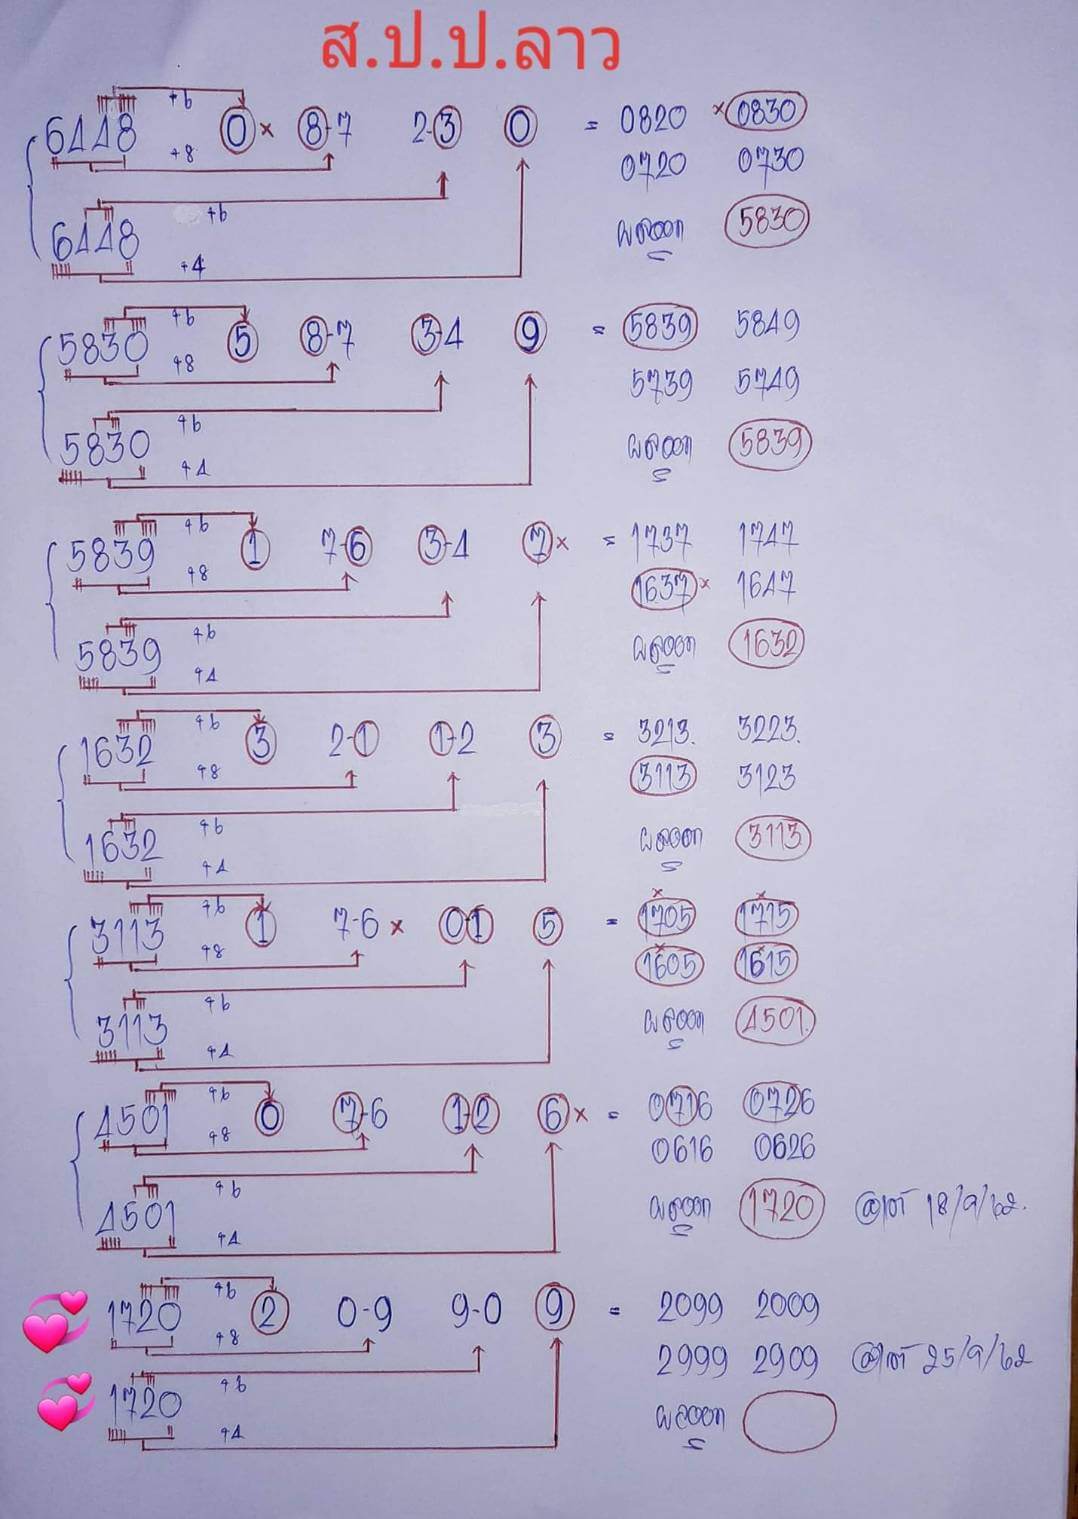 ส.ป.ป.ลาว
6448 +6 +8 0 × 8-7 2-3 0 = 0820 × 0830
0720 0730
6448 +6 +4 ผลออก 5830
5830 +6 +8 5 8-7 3-4 9 = 5839 5849
5739 5749
5830 +6 +4 ผลออก 5839
5839 +6 +8 1 7-6 3-4 7 × = 1737 1747
1637 × 1647
5839 +6 +4 ผลออก 1632
1632 +6 +8 3 2-1 1-2 3 = 3213. 3223.
3113 3123
1632 +6 +4 ผลออก 3113
3113 +6 +8 1 7-6 × 0-1 5 = × 1705 × 1715
× 1605 × 1615
3113 +6 +4 ผลออก 4501.
4501 +6 +8 0 7-6 1-2 6 × = 0716 0726
0616 0626
4501 +6 +4 ผลออก 1720 18/9/62.
1720 +6 +8 2 0-9 9-0 9 = 2099 2009
2999 2909 25/9/62
1720 +6 +4 ผลออก